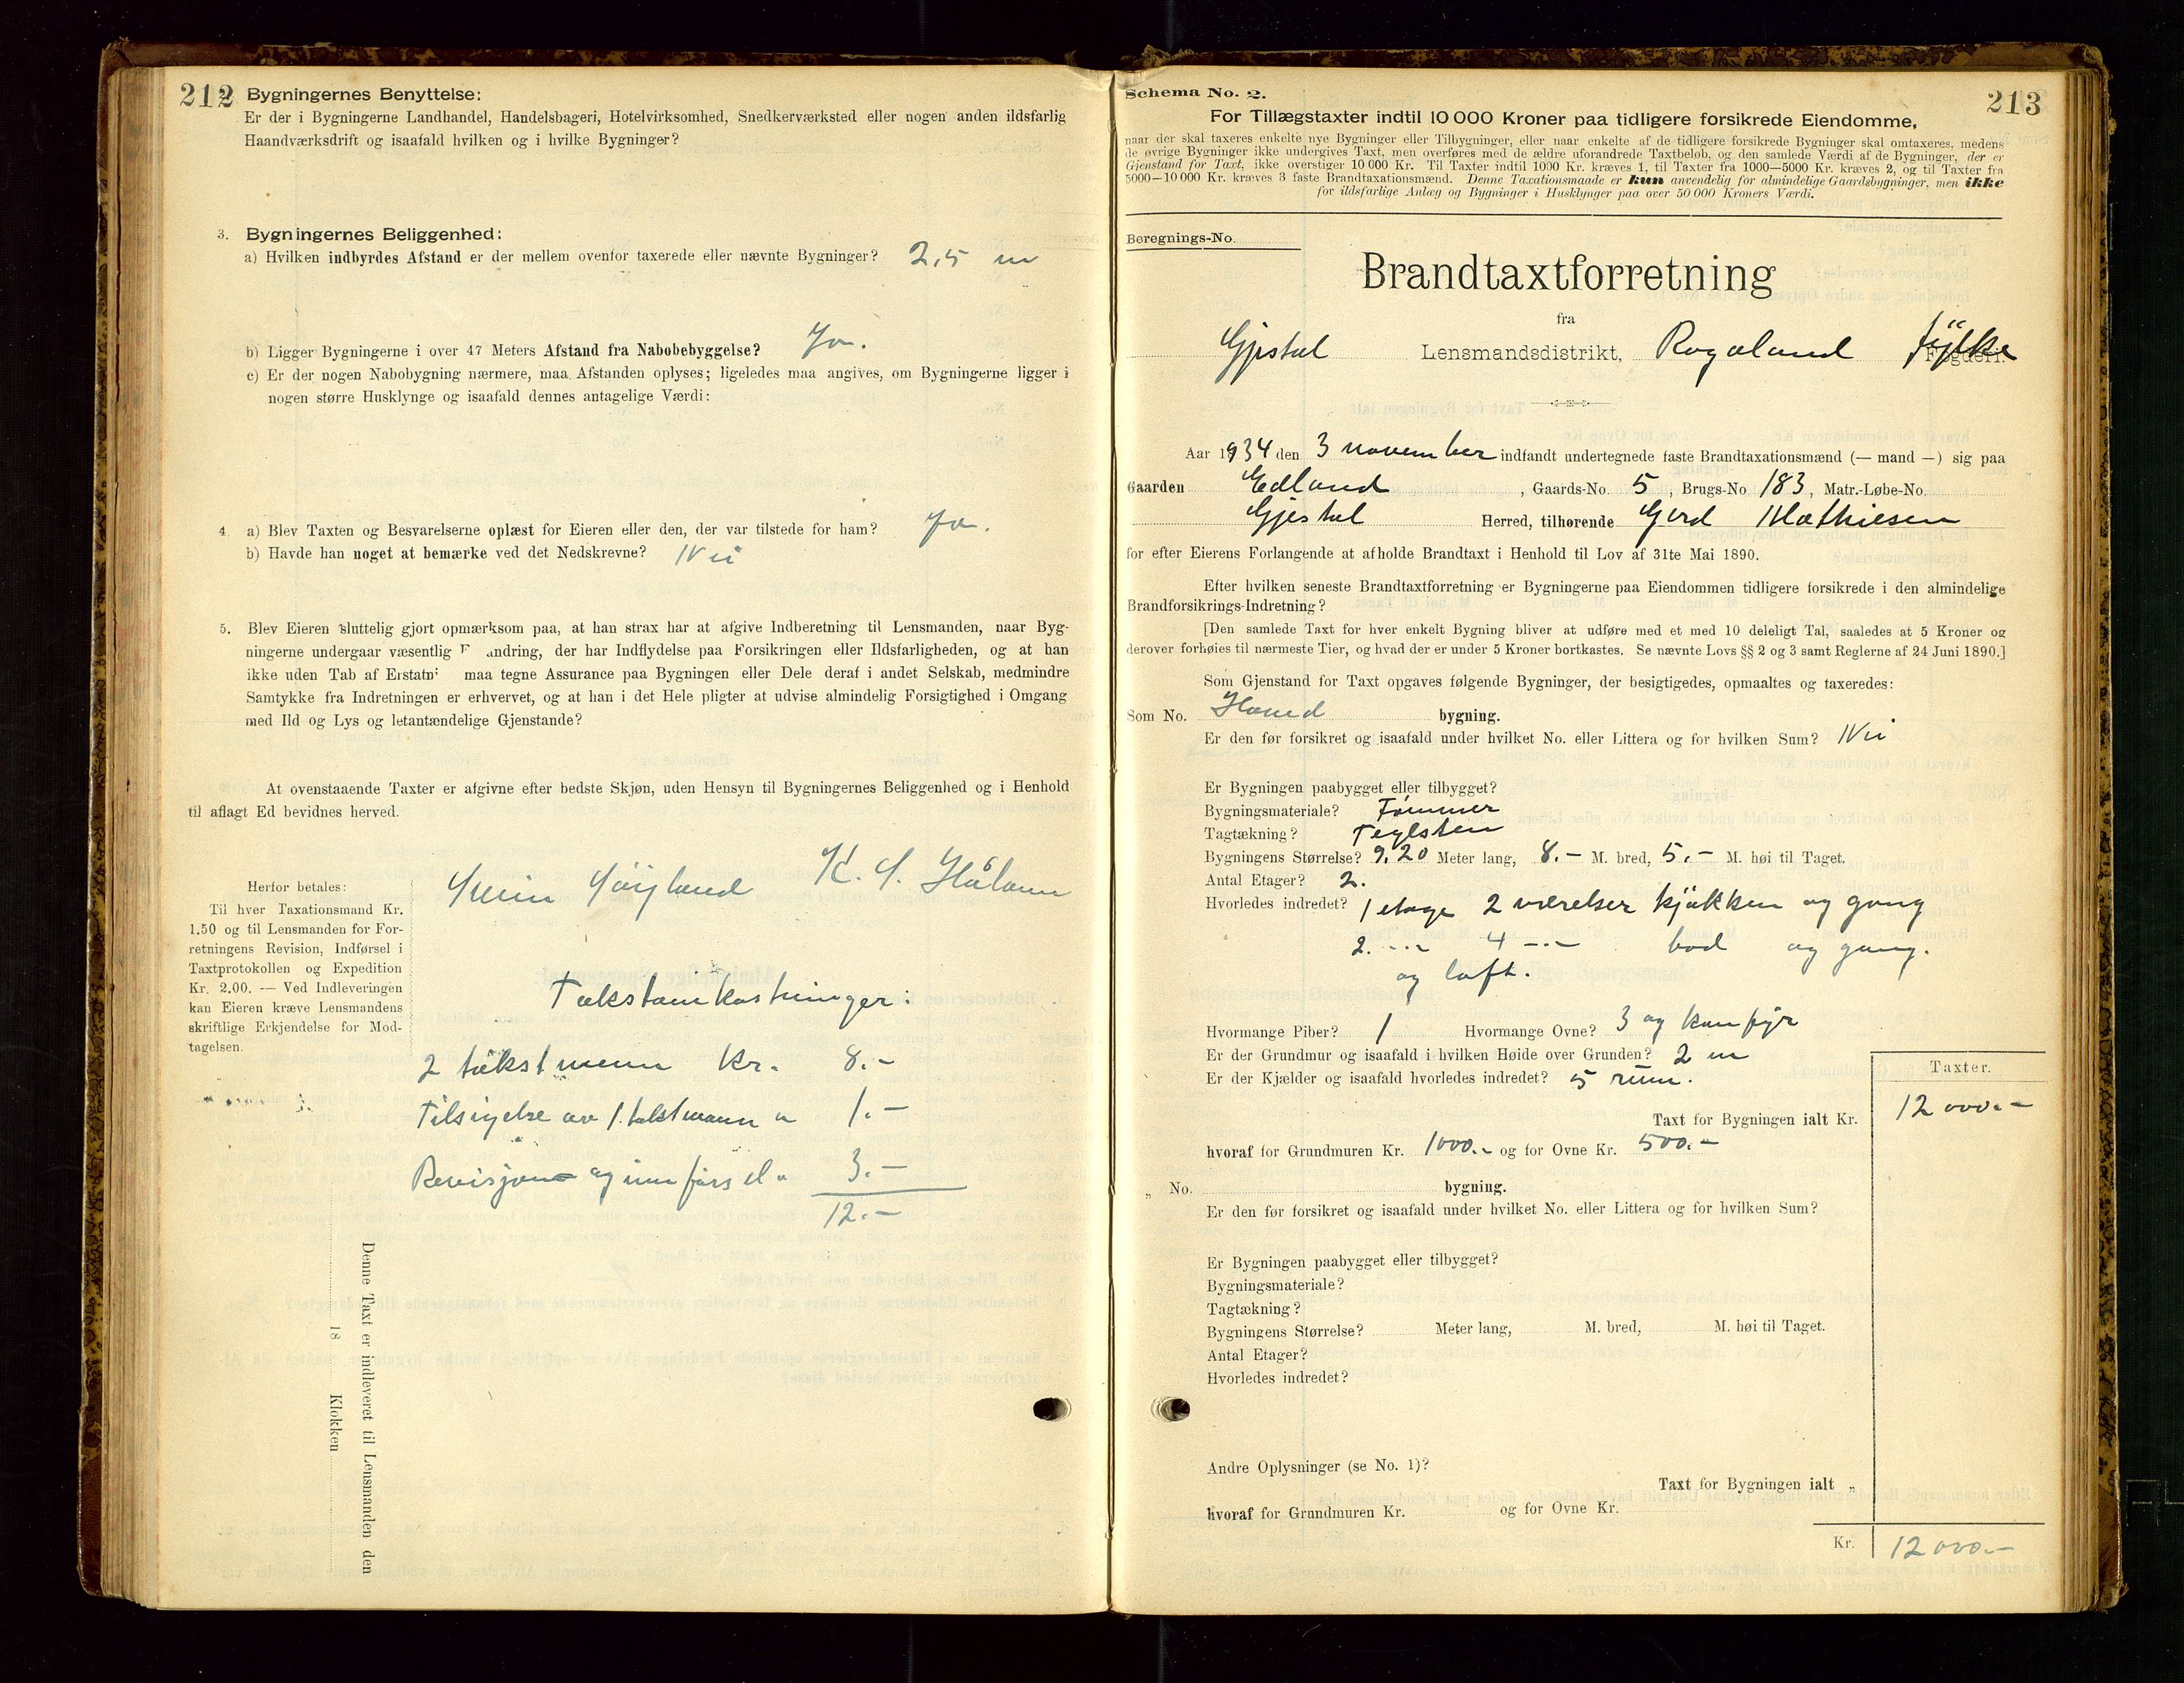 212
Bygningernes Benyttelse:
Er der i Bygningerne Landhandel, Handelsbageri, Hotelvirksomhed, Snedkerværksted eller nogen anden ildsfarlig
Haandværksdrift og isaafald hvilken og i hvilke Bygninger?
3. Bygningernes Beliggenhed:
a) Hvilken indbyrdes Afstand er der mellem ovenfor taxerede eller nævnte Bygninger? 2,5 m
b) Ligger Bygningerne i over 47 Meters Afstand fra Nabobebyggelse? Ja.
c) Er der nogen Nabobygning nærmere, maa Afstanden oplyses; ligeledes maa angives, om Bygningerne ligger i
nogen større Husklynge og isaafald dennes antagelige Værdi:
4. a) Blev Taxten og Besvarelserne oplæst for Eieren eller den, der var tilstede for ham? Ja.
b) Havde han noget at bemærke ved det Nedskrevne? Nei
5. Blev Eieren sluttelig gjort opmærksom paa, at han strax har at afgive Indberetning til Lensmanden, naar Byg-
ningerne undergaar væsentlig F andring, der har Indflydelse paa Forsikringen eller Ildsfarligheden, og at han
ikke uden Tab af Erstatn maa tegne Assurance paa Bygningen eller Dele deraf i andet Selskab, medmindre
Samtykke fra Indretningen er erhvervet, og at han i det Hele pligter at udvise almindelig Forsigtighed i Omgang
med Ild og Lys og letantændelige Gjenstande?
At ovenstaaende Taxter er afgivne efter bedste Skjøn, uden Hensyn til Bygningernes Beliggenhed og i Henhold
til aflagt Ed bevidnes herved.
K. S. Håland
Herfor betales:
Til hver Taxationsmand Kr.
1.50 og til Lensmanden for For-
retningens Revision, Indførsel i
Taxtprotokollen og Expedition
Kr. 2.00. — Ved Indleveringen
kan Eieren kræve Lensmandens
skriftlige Erkjendelse for Mod-
tagelsen.
Takstomkostninger:
2 takstmenn Kr. 8.-
Tilsigelse av 1 takstmann " 1.-
Revisjon og innførsel " 3.-
12.-
Denne Taxt er indleveret til Lensmanden den
18 Klokken
213
Schema No. 2.
For Tillægstaxter indtil 10 000 Kroner paa tidligere forsikrede Eiendomme,
naar der skal taxeres enkelte nye Bygninger eller Tilbygninger, eller naar enkelte af de tidligere forsikrede Bygninger skal omtaxeres, medens
de øvrige Bygninger ikke undergives Taxt, men overføres med de ældre uforandrede Taxtbeløb, og den samlede Værdi af de Bygninger, der er
Gjenstand for Taxt, ikke overstiger 10 000 Kr. Til Taxter indtil 1000 Kr. kræves 1, til Taxter fra 1000—5000 Kr. kræves 2, og til Taxter fra
5000—10 000 Kr. kræves 3 faste Brandtaxationsmænd. Denne Taxationsmaade er kun anvendelig for almindelige Gaardsbygninger, men ikke
for ildsfarlige Anlæg og Bygninger i Husklynger paa over 50 000 Kroners Værdi.
Beregnings-No.
Brandtaxtforretning
fra
Gjestal Lensmandsdistrikt, Rogaland Fogderi. fylke
Aar 1934 den 3 november indfandt undertegnede faste Brandtaxationsmænd (— mand —) sig paa
Gaarden Edland, Gaards-No. 5, Brugs-No 183, Matr.-Løbe-No.
Gjestal Herred, tilhørende Gerd Mathiesen
for efter Eierens Forlangende at afholde Brandtaxt i Henhold til Lov af 31te Mai 1890.
Efter hvilken seneste Brandtaxtforretning er Bygningerne paa Eiendommen tidligere forsikrede i den almindelige
Brandforsikrings-Indretning?
[Den samlede Taxt for hver enkelt Bygning bliver at udføre med et med 10 deleligt Tal, saaledes at 5 Kroner og
derover forhøies til nærmeste Tier, og hvad der er under 5 Kroner bortkastes. Se nævnte Lovs §§ 2 og 3 samt Reglerne af 24 Juni 1890.]
Som Gjenstand for Taxt opgaves følgende Bygninger, der besigtigedes, opmaaltes og taxeredes:
Som No. bygning.
Er den før forsikret og isaafald under hvilket No. eller Littera og for hvilken Sum? Nei
Er Bygningen paabygget eller tilbygget?
Bygningsmateriale? Tømmer
Tagtækning? Teglsten
Bygningens Størrelse? 9,20 Meter lang, 8.- M. bred, 5.- M. høi til Taget.
Antal Etager? 2.
Hvorledes indredet? 1 etage 2 værelser kjøkken og gang
2. -"- 4 -"- bod og gang.
og loft.
Hvormange Piber? 1 Hvormange Ovne? 3 og komfyr
Er der Grundmur og isaafald i hvilken Høide over Grunden? 2 m
Er der Kjælder og isaafald hvorledes indredet? 5 rum.
Taxter.
Taxt for Bygningen ialt Kr. 12000.-
hvoraf for Grundmuren Kr. 1000.- og for Ovne Kr. 500.-
„ No. bygning.
Er den før forsikret og isaafald under hvilket No. eller Littera og for hvilken Sum?
Er Bygningen paabygget eller tilbygget?
Bygningsmateriale?
Tagtækning?
Bygningens Størrelse? Meter lang, M. bred, M. høi til Taget.
Antal Etager?
Hvorledes indredet?
Andre Oplysninger (se No. 1)?
Taxt for Bygningen ialt „
hvoraf for Grundmuren Kr. og for Ovne Kr.
Kr. 12000.-